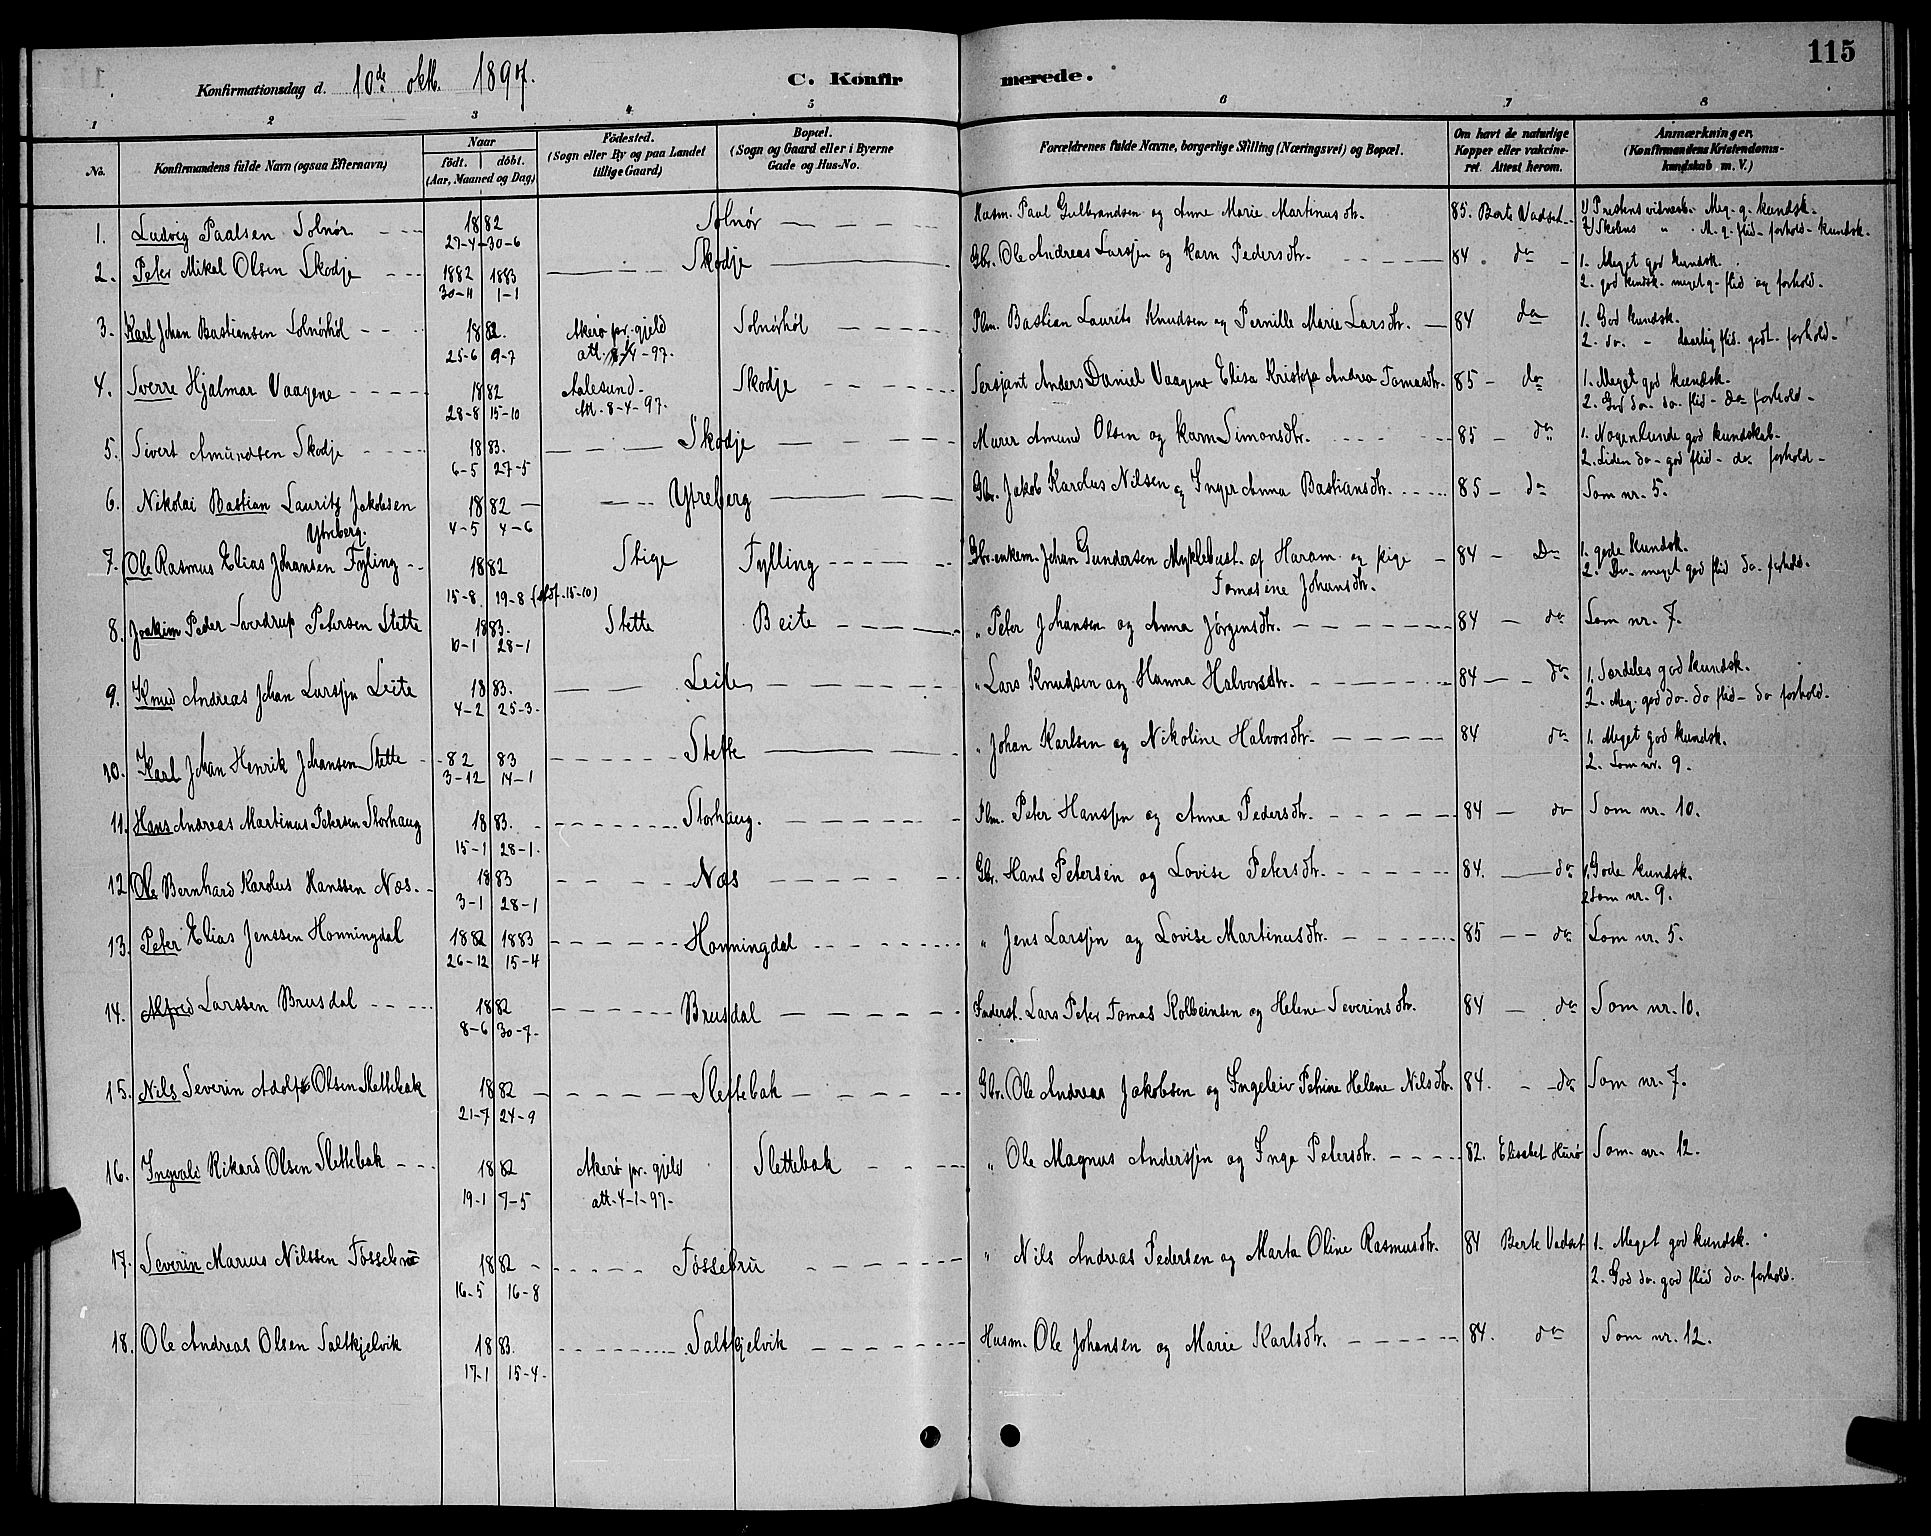 115
Konfirmationsdag d. 10de okt. 1897.
C. Konfir merede.
1 2 3 4 5 6 7 8
No. Konfirmandens fulde Navn (ogsaa Efternavn) Naar födt. döbt. (Aar, Maaned og Dag) Födested. (Sogn eller By og paa Landet tillige Gaard) Bopæl. (Sogn og Gaard eller i Byerne Gade og Hus-No. Forældrenes fulde Navne, borgerlige Stilling (Næringsvei) og Bopæl. Om havt de naturlige Kopper eller vakcineret. Attest herom. Anmærkninger. (Konfirmandens Kristendomskundskab m. V.)
1. Ludvig Paalsen Solnör 1882 Solnör Husm. Paul Gulbrandsen og Anne Marie Martinusdtr. 85. Berte Vadset 1) Prestens vidnesb. Meg. g. kundsk.
27-4 30-6 2) Skolens " M. g. flid - forhold - kundsk.
2. Peter Mikal Olsen Skodje 1882 1883 Skodje Gbr. Ole Andreas Larssen og Karn Pedersdtr. 84 do 1. Meget god kundsk.
30-11 1-1 2. god kundsk. meget g. flid og forhold.
3. Karl Johan Bastiansen Solnörhöl 1882. Akerö pr. gjeld Solnörhöl Plm. Bastian Laurits Knudsen og Pernille Marie Larsdtr. 84 do 1. God kundsk.
25-6 9-7 att. 8/4-97. 2. do. - daarlig flid. godt forhold
4. Sverre Hjalmar Vaagene 1882 Aalesund Skodje Sersjant Anders Daniel Vaagene Elisa Kristofa Andrea Tomasdtr. 85 - do 1. Meget god kundsk.
28-8 15-10 Att. 8-4-97. 2. God do. do. flid - do forhold
5. Sivert Amundsen Skodje 1883. Skodje Murer Amund Olsen og Karn Simonsdtr. 85 - do 1. Nogenlunde god kundskab.
6-5 27-5 2. Liden do - god flid - do forhold
6. Nikolai Bastian Lauritz Jakobsen 1882 Ytreberg Gbr. Jakob Karolus Nilsen og Inger Anna Bastiansdtr. 85 - do Som nr. 5.
Ytreberg. 4-5 4-6
7. Ole Rasmus Elias Johansen Fylling 1882 Stige Fylling Gbr. enkem. Johan Gundersen Myklebust af Haram og pige 84 - Do 1. gode kundsk.
15-8. 19-8 (15-10) Tomasine Johansdtr. 2. Do - meget god flid do forhold.
8. Joakim Peder Sverdrup Petersen Stette 1883. Stette Beite " Peter Johansen og Anna Jörgensdtr. 84 - do Som nr. 7.
10-1 28-1
9. Knud Andreas Johan Larssen Leite 1883. Leite " Lars Knudsen og Hanna Halvorsdtr. 84 - do 1. Særdeles god kundsk.
4-2 25-3. 2. Meg. god do. do flid - do forhold.
10. Karl Johan Henrik Johansen Stette 82 83 Stette " Johan Karlsen og Nikoline Halvorsdtr. 84 do 1. Meget god kundsk.
3-12 14-1 2. Som nr. 9.
11. Hans Andreas Martinus Petersen Storhaug 1883. Storhaug. Plm. Peter Hanssen og Anna Pedersdtr. 84 - do Som nr. 10.
15-1 28-1.
12. Ole Bernhard Karolus Hanssen Næs. 1883 Næs Gbr. Hans Petersen og Lovise Petersdtr. 84. do 1. Gode kundsk.
3-1 28-1 2. Som nr. 9.
13. Peter Elias Jenssen Honningdal 1882 1883 Honningdal " Jens Larssen og Lovise Martinusdtr. 85 - do Som nr. 5.
26-12 15-4
14. Alfred Larssen Brusdal 1882 Brusdal Faderst. Lars Peter Tomas Kolbeinsen og Helene Severinsdtr. 84 - do Som nr. 10.
8-6 30-7.
15. Nils Severin Adolf Olsen Slettebak 1882 Slettebak Gbr. Ole Andreas Jakobsen og Ingeleiv Petrine Helene Nilsdtr. 84. - do Som nr. 7.
21-7 24-9
16. Ingvald Rikard Olsen Slettebak 1882 Akerö pr. gjeld Slettebak " Ole Magnus Anderssen og Inga Petersdtr. 82. Elisabet Hurö Som nr. 12.
19-1 7-5 att. 4-1-97.
17. Severin Marius Nilssen Fössebrü 1882 Fössebrü " Nils Andreas Pedersen og Marta Oline Rasmusdtr. 84 Berte Vadset 1. Meget god kundsk.
16-5 16-8 2. God do. god flid do. forhold.
18. Ole Andreas Olsen Saltkjelvik 1883. Saltkjelvik Husm. Ole Johansen og Marie Karlsdtr. 84. do Som nr. 12.
17-1 15-4.